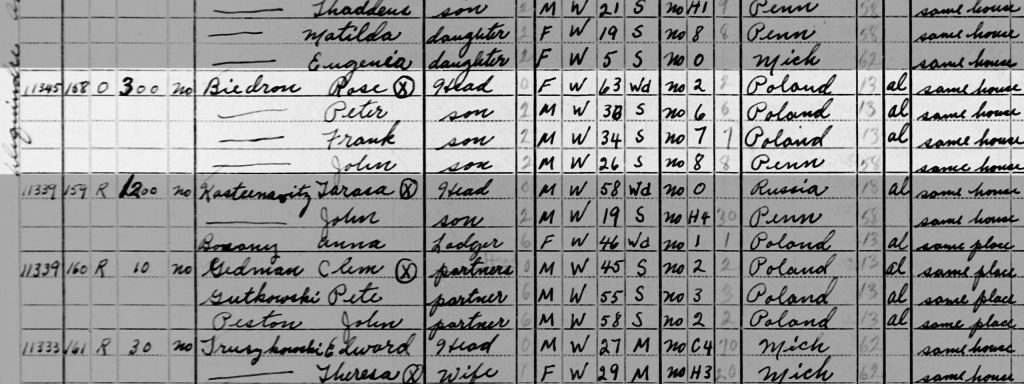 Thaddeus son 2 M W 21 S no H1 9 Penn 58 same house
Matilda daughter 2 F W 19 S no 8 8 Penn 58 same house
Eugenia daughter 2 F W 5 S no 0 Mich 62 same house
11345 158 O 300 no Biedron Rose X Head 0 F W 63 Wd no 2 2 Poland 13 al same house
Peter son 2 M W 38 S no 6 6 Poland 13 al same house
Frank son 2 M W 34 S no 7 7 Poland 13 al same house
John son 2 M W 26 S no 8 8 Penn 58 same house
11339 159 R 1200 no Tarasa X Head 0 M W 58 Wd no 0 Russia 18 al same house
John son 2 M W 19 S no H4 30 Penn 58 same house
Anna Lodger 6 F W 46 Wd no 1 1 Poland 13 al same place
11339 160 R 10 no Gidman Clem X partners 0 M W 45 S no 2 2 Poland 13 al same place
Gutkowski Pete partner 6 M W 55 S no 3 3 Poland 13 al same place
Peston John partner 6 M W 58 S no 2 2 Poland 13 al same place
11333 161 R 30 no Truszkowski Edward Head 0 M W 27 M no C4 70 Mich 62 same house
Theresa X Wife 1 F W 29 M no H3 20 Mich 62 same house